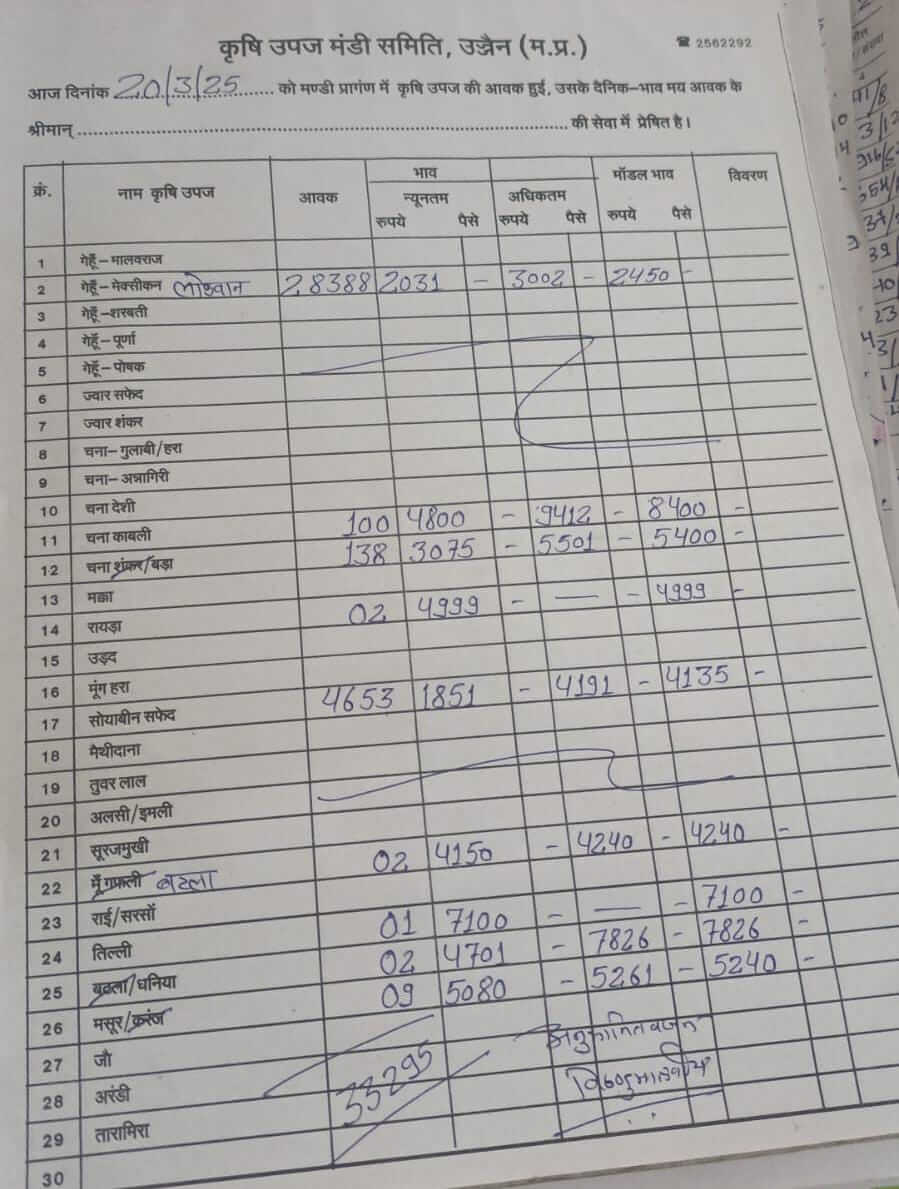 कृषि उपज मंडी समिति, उज्जैन (म.प्र.) ☎ 2562292
आज दिनांक 20/3/25 को मण्डी प्रागंण में कृषि उपज की आवक हुई, उसके दैनिक-भाव मय आवक के
श्रीमान् की सेवा में प्रेषित है।
क्रं. नाम कृषि उपज आवक भाव मॉडल भाव विवरण
न्यूनतम अधिकतम
रुपये पैसे रुपये पैसे रुपये पैसे
1 गेहूँ-मालवराज
2 गेहूँ-मेक्सीकन लोकवान 28388 2031 - 3002 - 2450 -
3 गेहूँ-शरबती
4 गेहूँ-पूर्णा
5 गेहूँ-पोषक
6 ज्वार सफेद
7 ज्वार शंकर
8 चना-गुलाबी/हरा
9 चना-अन्नागिरी
10 चना देशी 100 4800 - 9412 - 8400 -
11 चना काबली 138 3075 - 5501 - 5400 -
12 चना शंकर/बड़ा
13 मक्का 02 4999 - — - 4999 -
14 रायड़ा
15 उड़द
16 मूंग हरा 4653 1851 - 4191 - 4135 -
17 सोयाबीन सफेद
18 मैथीदाना
19 तुवर लाल
20 अलसी/इमली
21 सूरजमुखी 02 4150 - 4240 - 4240 -
22 मूँगफली बटला
23 राई/सरसों 01 7100 - — - 7100 -
24 तिल्ली 02 4701 - 7826 - 7826 -
25 बटला/धनिया 09 5080 - 5261 - 5240 -
26 मसूर/करंज
27 जौ 33295 अनुमानित वजन
28 अरंडी
29 तारामिरा
30